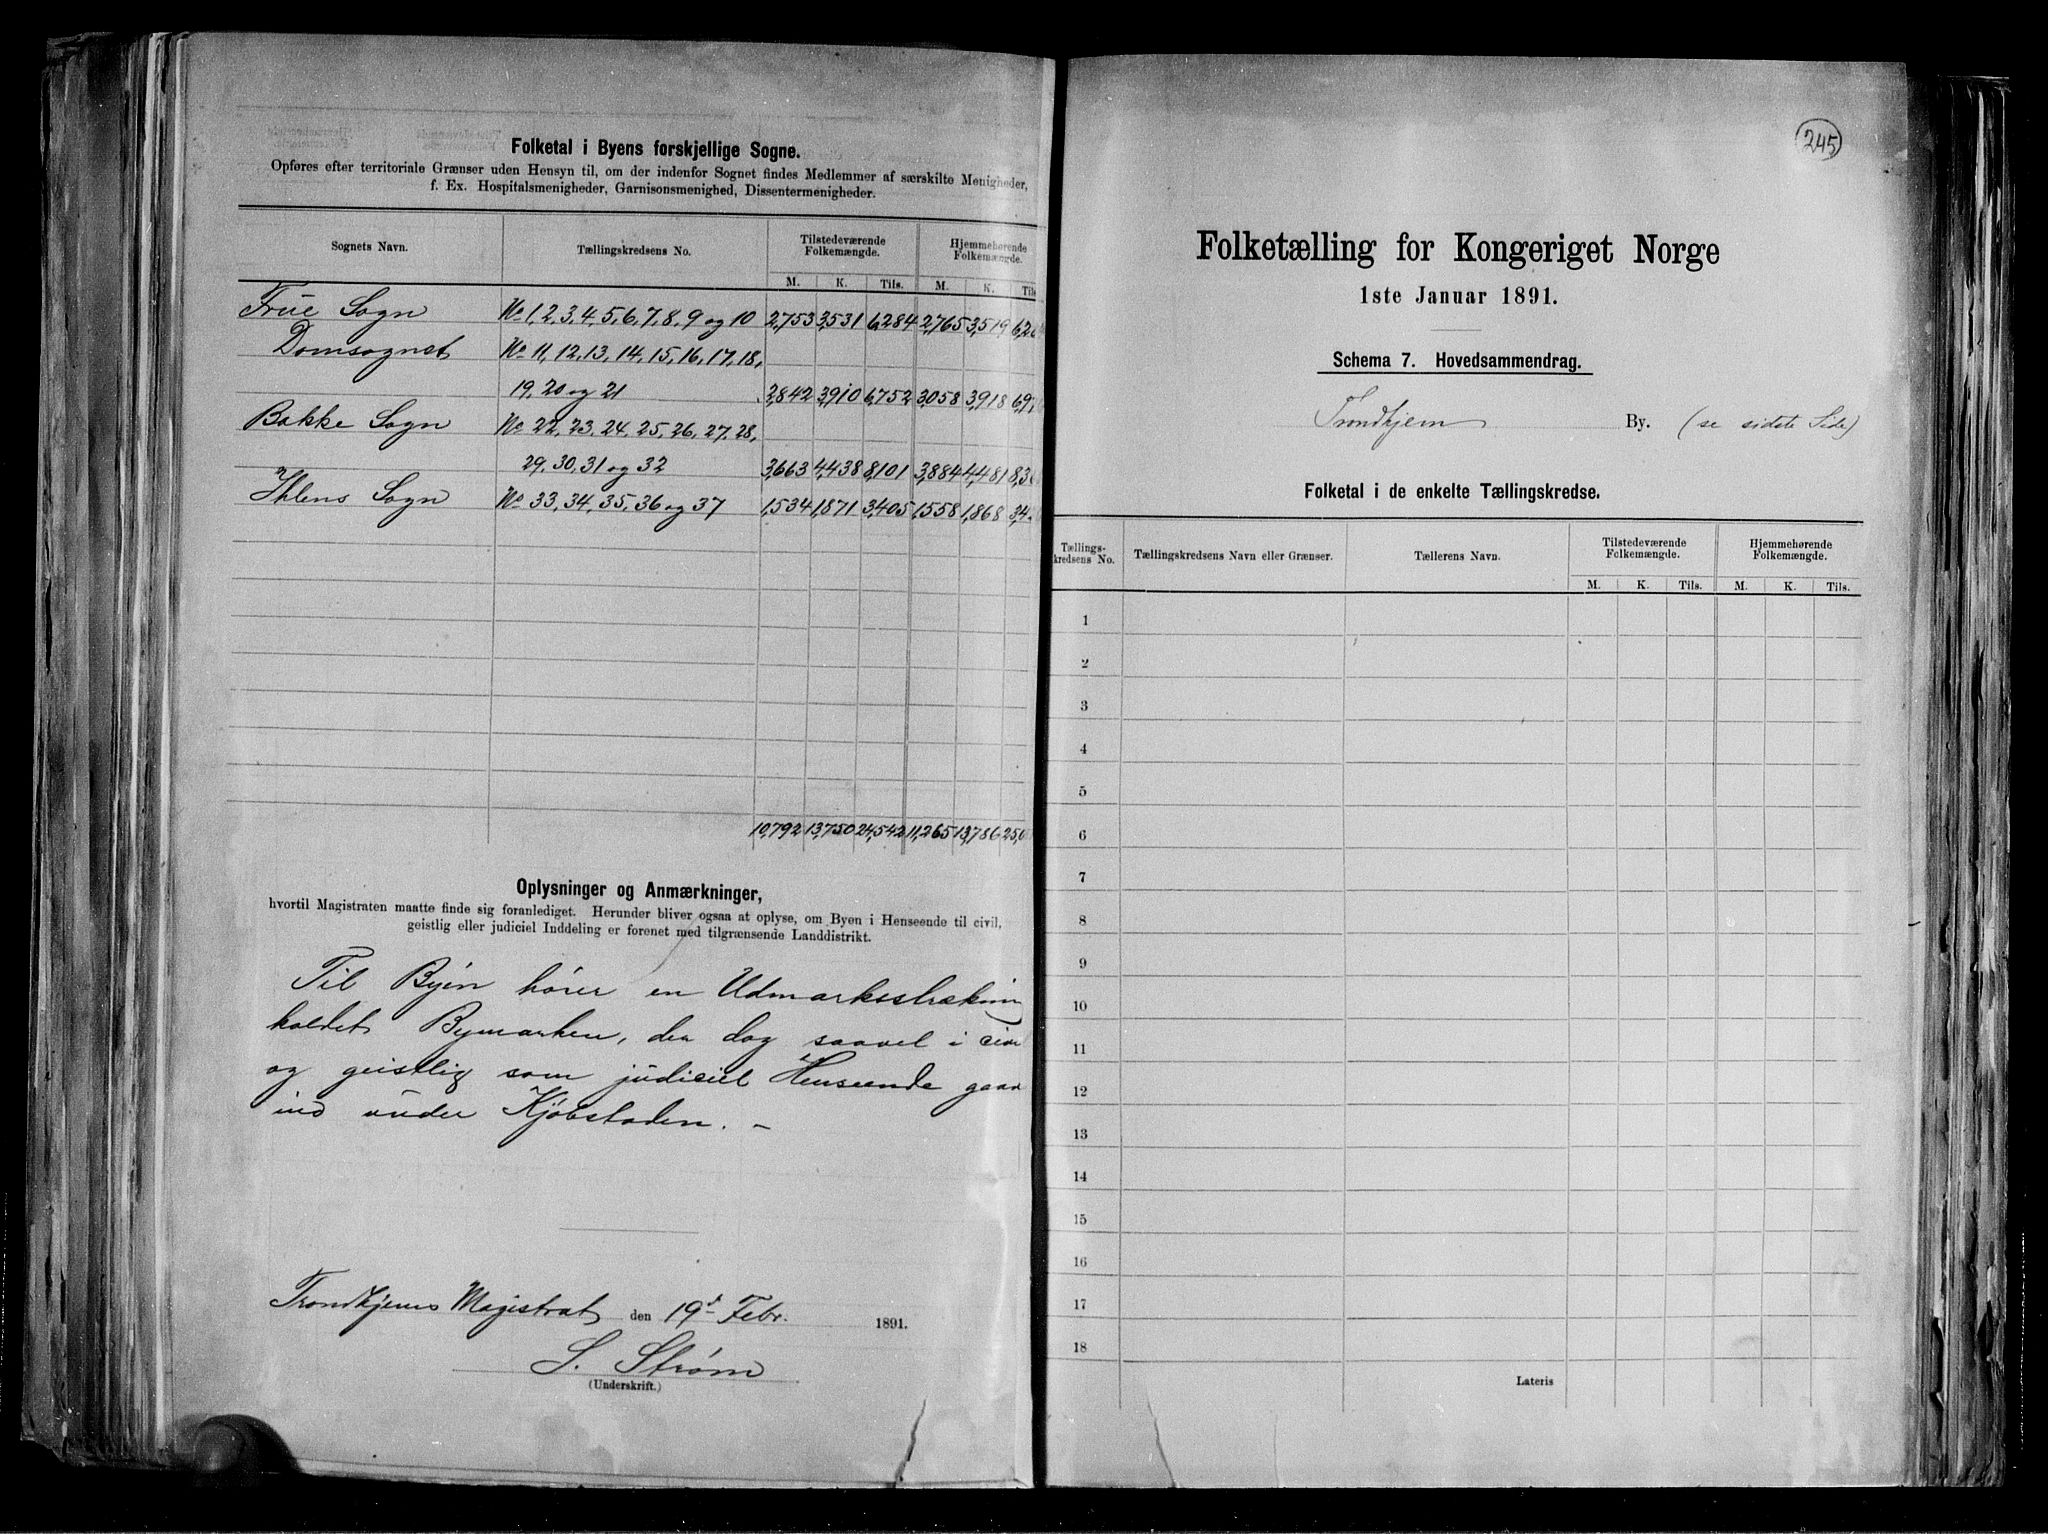 Folketal i Byens forskjellige Sogne.
Opføres efter territoriale Grænser uden Hensyn til, om der indenfor Sognet findes Medlemmer af særskilte Menigheder,
f. Ex. Hospitalsmenigheder, Garnisonsmenighed, Dissentermenigheder.
Sognets Navn. Tællingskredsens No. Tilstedeværende Folkemængde. Hjemmehørende Folkemængde.
M. K. Tils. M. K. Tils
Frue Sogn No 1, 2, 3, 4, 5, 6, 7, 8, 9 og 10 2,753 3,531 6,284 2,765 3,519 6,2
Domsognet No 11, 12, 13, 14, 15, 16, 17, 18,
19, 20 og 21 2,842 3,910 6,752 3,058 3,918 6,9
Bakke Sogn No 22, 23, 24, 25, 26, 27, 28,
29, 30, 31 og 32 3,663 4,438 8,101 3,884 4,481 8,3
Ihlens Sogn No 33, 34, 35, 36 og 37 1,534 1,871 3,405 1,558 1,868 3,4
10,792 13,750 24,542 11,265 13,786 25,0
Oplysninger og Anmærkninger,
hvortil Magistraten maatte finde sig foranlediget. Herunder bliver ogsaa at oplyse, om Byen i Henseende til civil,
geistlig eller judiciel Inddeling er forenet med tilgrænsende Landdistrikt.
Til Byen hører en Udmarksstrækning
kaldet Bymarken, der dog saavel i civil
og geistlig som judiciel Henseende gaar
ind under Kjøbstaden. –
Trondhjems Magistrat den 19de Febr. 1891.
S. Strøm
(Underskrift.)
245
Folketælling for Kongeriget Norge
1ste Januar 1891.
Schema 7. Hovedsammendrag.
Trondhjem By. (se sidste Side)
Folketal i de enkelte Tællingskredse.
Tællingskredsens No. Tællingskredsens Navn eller Grænser. Tællerens Navn. Tilstedeværende Folkemængde. Hjemmehørende Folkemængde.
M. K. Tils. M. K. Tils.
1
2
3
4
5
6
7
8
9
10
11
12
13
14
15
16
17
18
Lateris